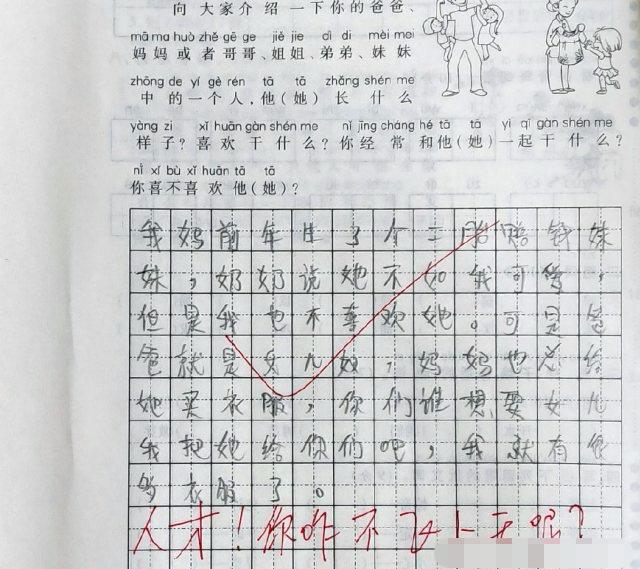 向大家介绍一下你的爸爸、
mā ma huò zhě gē ge jiě jie dì di mèi mei
妈妈或者哥哥、姐姐、弟弟、妹妹
zhōng de yí gè rén tā tā zhǎng shén me
中的一个人,他(她)长什么
yàng zi xǐ huān gàn shén me nǐ jīng cháng hé tā tā yì qǐ gàn shén me
样子?喜欢干什么?你经常和他(她)一起干什么?
nǐ xǐ bù xǐ huān tā tā
你喜不喜欢他(她)?
我妈前年生了个二胎赔钱妹
妹,奶奶说她不如我可爱,
但是我也不喜欢她。可是爸
爸就是女儿奴,妈妈也总给
她买衣服,你们谁想要女儿
我把她给你们吧,我就有很
多衣服了。
人才!你咋不飞上天呢?